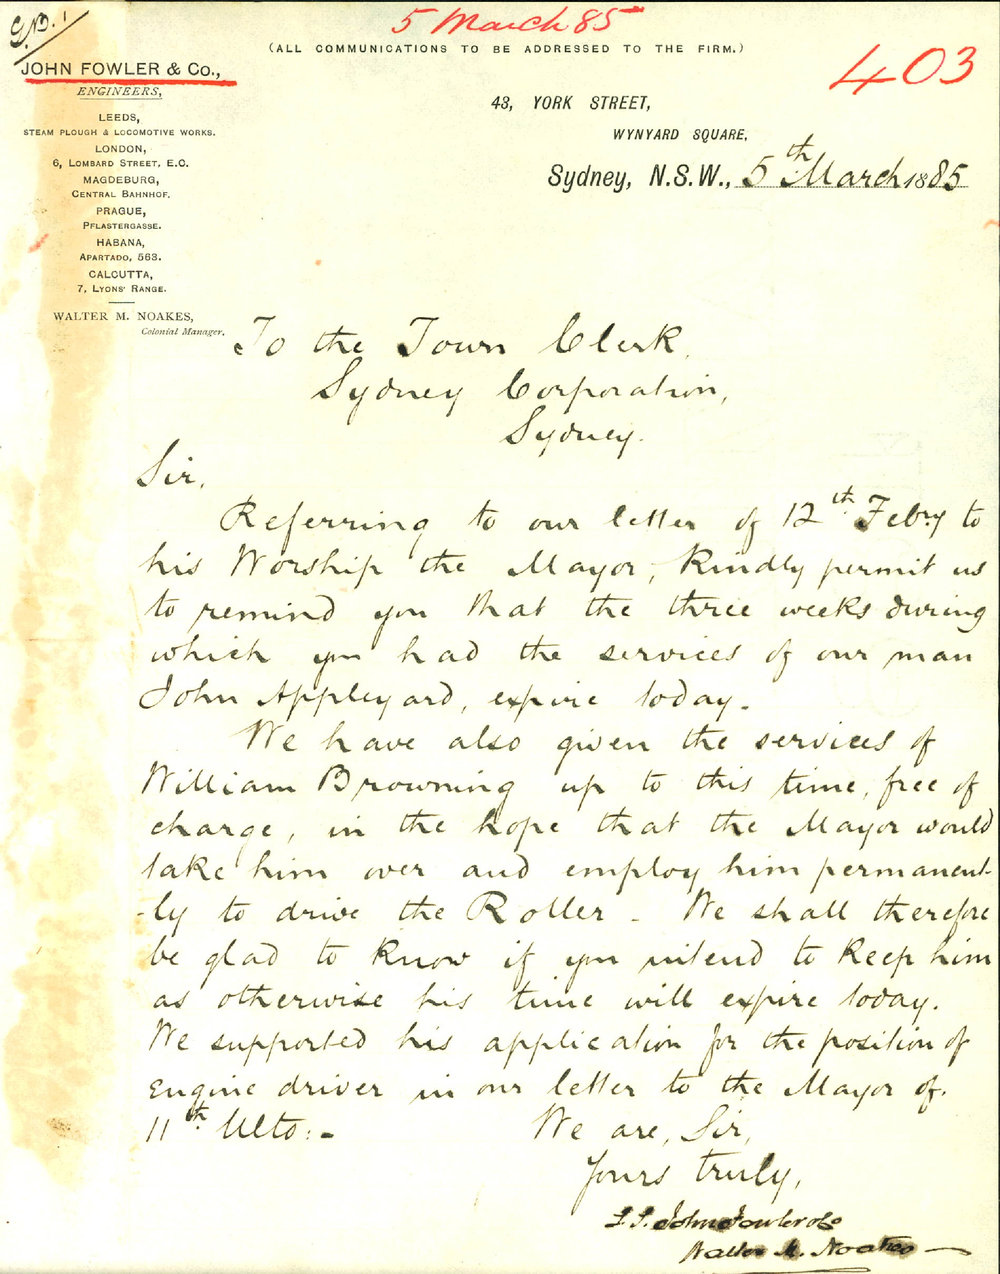 5 March 85
(ALL COMMUNICATIONS TO BE ADDRESSED TO THE FIRM.)
403
JOHN FOWLER & Co.,
ENGINEERS,
LEEDS,
STEAM PLOUGH & LOCOMOTIVE WORKS.
LONDON,
6, LOMBARD STREET, E.C.
MAGDEBURG,
CENTRAL BAHNHOF.
PRAGUE,
PFLASTERGASSE.
HABANA,
APARTADO, 563.
CALCUTTA,
7, LYONS' RANGE.
WALTER M. NOAKES,
Colonial Manager.
43, YORK STREET,
WYNYARD SQUARE,
Sydney, N.S.W., 5th March 1885
To the Town Clerk,
Sydney Corporation,
Sydney.
Sir,
Referring to our letter of 12th Febry to
his Worship the Mayor, kindly permit us
to remind you that the three weeks during
which you had the services of our man
John Appleyard, expire today.
We have also given the services of
William Browning up to this time, free of
charge, in the hope that the Mayor would
take him over and employ him permanent-
-ly to drive the Roller - We shall therefore
be glad to know if you intend to keep him
as otherwise his time will expire today.
We supported his application for the position of
Engine driver in our letter to the Mayor of.
11th Ulto:-
We are, Sir,
Yours truly,
John Fowler & Co
Walter M. Noakes